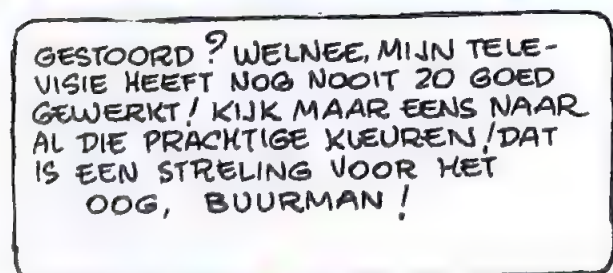 GESTOORD? WELNEE, MIJN TELE-
VISIE HEEFT NOG NOOIT ZO GOED
GEWERKT! KIJK MAAR EENS NAAR
AL DIE PRACHTIGE KLEUREN! DAT
IS EEN STRELING VOOR HET
OOG, BUURMAN!